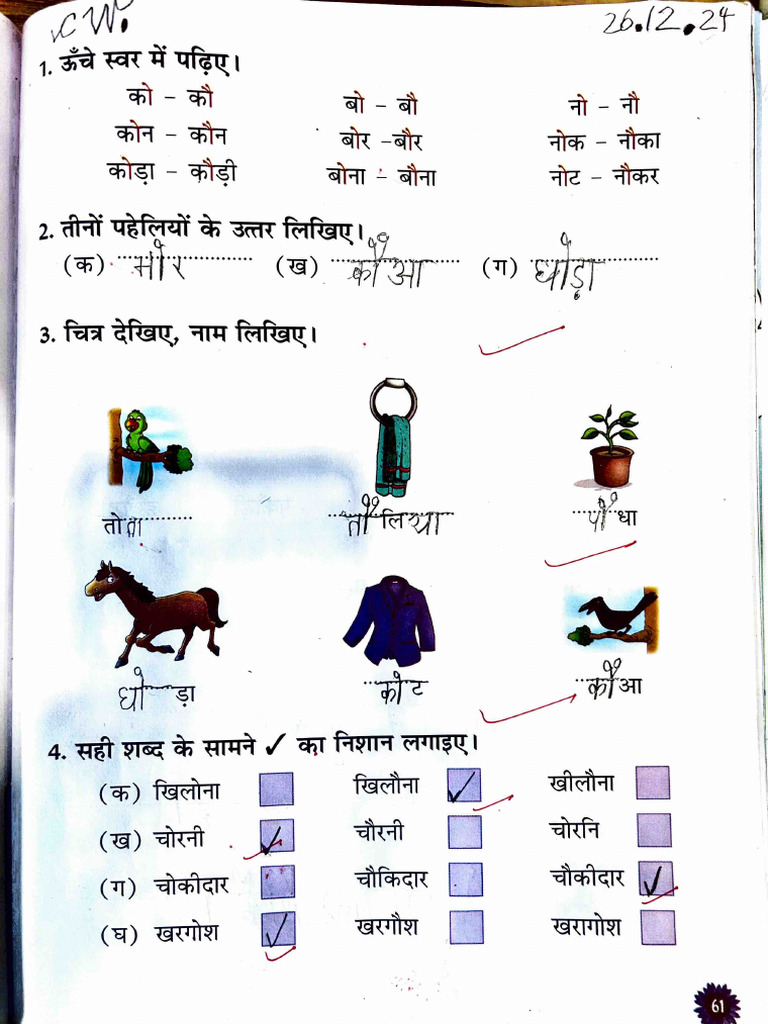 CW.
26.12.24
1. ऊँचे स्वर में पढ़िए।
को - कौ बो - बौ नो - नौ
कोन - कौन बोर -बौर नोक - नौका
कोड़ा - कौड़ी बोना - बौना नोट - नौकर
2. तीनों पहेलियों के उत्तर लिखिए।
(क) मोर (ख) कौआ (ग) घोड़ा
3. चित्र देखिए, नाम लिखिए।
तोता तौलिया पौधा
घोड़ा कोट कौआ
4. सही शब्द के सामने ✓ का निशान लगाइए।
(क) खिलोना खिलौना ✓ खीलौना
(ख) चोरनी ✓ चौरनी चोरनि
(ग) चोकीदार चौकिदार चौकीदार ✓
(घ) खरगोश ✓ खरगौश खरागोश
61